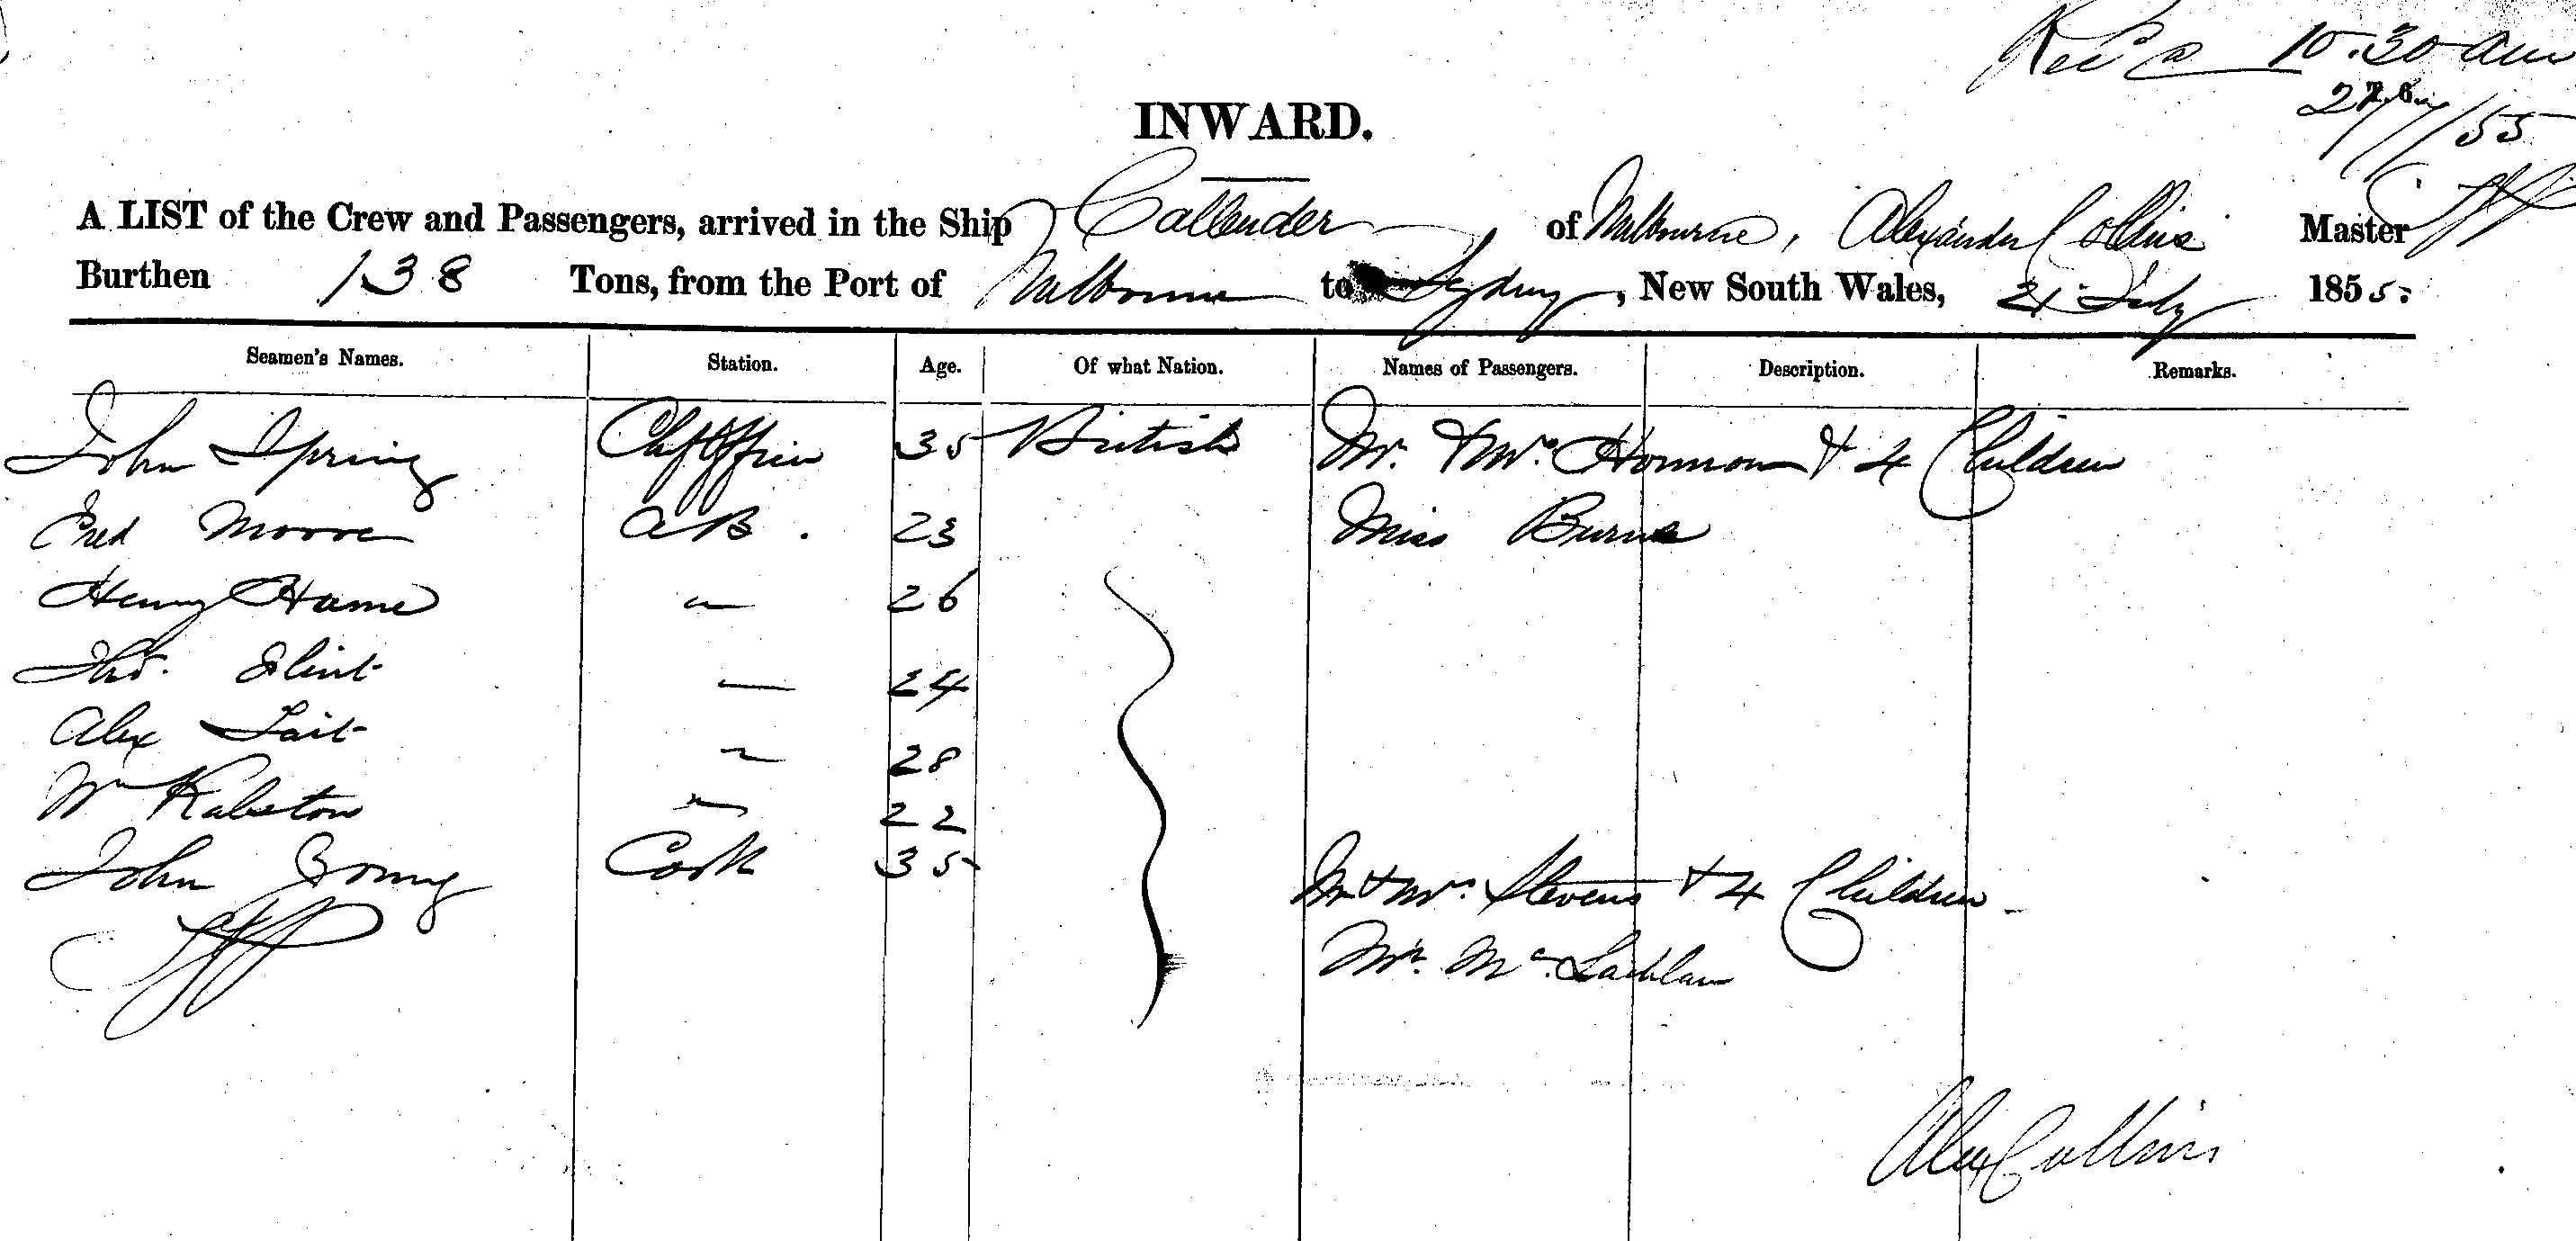 Rec'd 10.30 am
/55
INWARD.
A LIST of the Crew and Passengers, arrived in the Ship Callender of Melbourne, Alexander Collins Master
Burthen 138 Tons, from the Port of Melbourne to Sydney, New South Wales, July 1855.
Seamen's Names. Station. Age. Of what Nation. Names of Passengers. Description. Remarks.
John Spring Chf Officer 35 British Mr. & Mrs. & 4 Children
Fred Moore AB. 23 Miss Burns
Henry Hame 26
Thos. Flint 24
Alex Tait 28
Wm Ralston 22
John Young Cook 35 Mr & Mrs. Stevens & 4 Children
Mr. McLachlan
Alex Collins